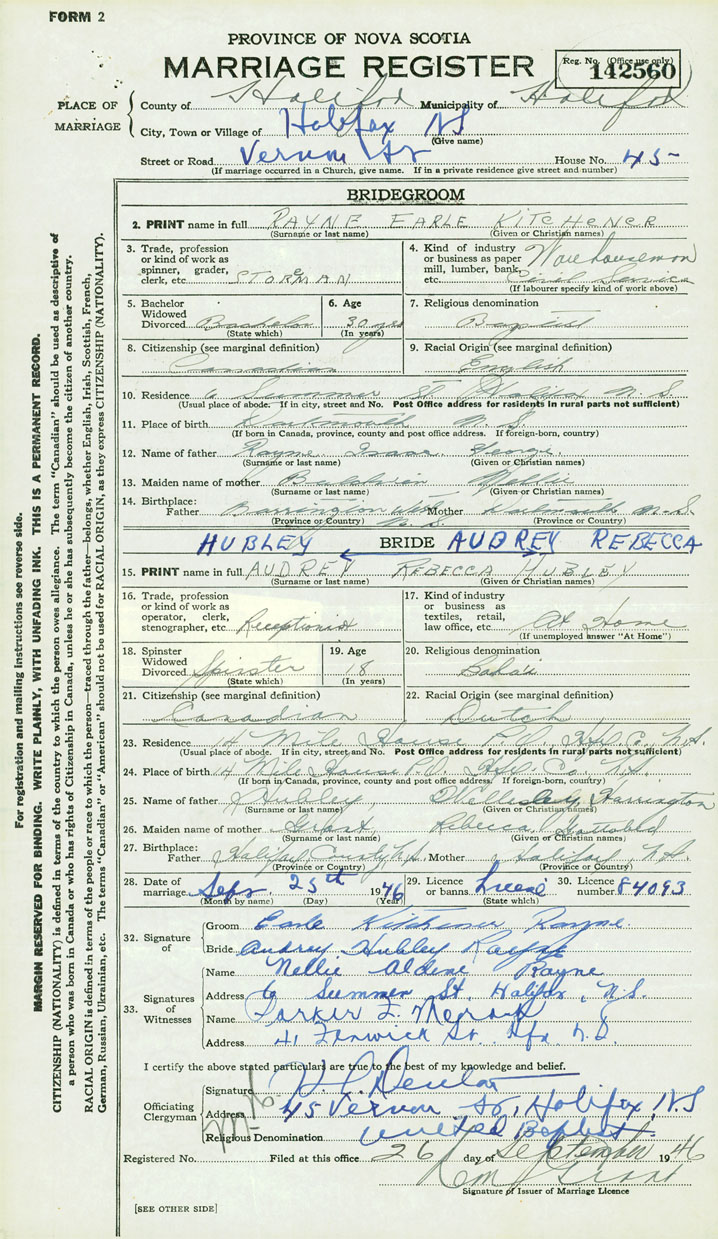 FORM 2
PROVINCE OF NOVA SCOTIA
MARRIAGE REGISTER
Reg. No. (Office use only)
142560
PLACE OF MARRIAGE
County of Halifax Municipality of Halifax
City, Town or Village of Halifax NS
(Give name)
Street or Road Vernon St House No. 45
(If marriage occurred in a Church, give name. If in a private residence give street and number)
BRIDEGROOM
2. PRINT name in full RAYNE EARLE KITCHENER
(Surname or last name) (Given or Christian names)
3. Trade, profession or kind of work as spinner, grader, clerk, etc. STOREMAN
4. Kind of industry or business as paper mill, lumber, bank, etc. Warehouseman Civil Service
(If labourer specify kind of work above)
5. Bachelor Widowed Divorced Bachelor
(State which)
6. Age 30 yrs
(In years)
7. Religious denomination Baptist
8. Citizenship (see marginal definition) Canadian
9. Racial Origin (see marginal definition) English
10. Residence 6 Summer St Halifax N.S.
(Usual place of abode. If in city, street and No. Post Office address for residents in rural parts not sufficient)
11. Place of birth N.S.
(If born in Canada, province, county and post office address. If foreign-born, country)
12. Name of father Rayne Isaac George
(Surname or last name) (Given or Christian names)
13. Maiden name of mother Nellie
(Surname or last name) (Given or Christian names)
14. Birthplace:
Father Barrington N.S. Mother N.S.
(Province or Country) (Province or Country)
HUBLEY BRIDE AUDREY REBECCA
15. PRINT name in full AUDREY REBECCA HUBLEY
(Surname or last name) (Given or Christian names)
16. Trade, profession or kind of work as operator, clerk, stenographer, etc. Receptionist
17. Kind of industry or business as textiles, retail, law office, etc. At Home
(If unemployed answer "At Home")
18. Spinster Widowed Divorced Spinster
(State which)
19. Age 18
(In years)
20. Religious denomination Baha'i
21. Citizenship (see marginal definition) Canadian
22. Racial Origin (see marginal definition) Dutch
23. Residence 14 Mile House P.O. Hfx. Co. N.S.
(Usual place of abode. If in city, street and No. Post Office address for residents in rural parts not sufficient)
24. Place of birth 14 Mile House P.O. Hfx. Co. N.S.
(If born in Canada, province, county and post office address. If foreign-born, country)
25. Name of father Hubley, Harrington
(Surname or last name) (Given or Christian names)
26. Maiden name of mother Grant Rebecca
(Surname or last name) (Given or Christian names)
27. Birthplace:
Father Halifax County N.S. Mother Halifax, N.S.
(Province or Country) (Province or Country)
28. Date of marriage Sept 25th 1946
(Month by name) (Day) (Year)
29. Licence or banns License
(State which)
30. Licence number 84093
32. Signature of
Groom Earle Kitchener Rayne
Bride Audrey Hubley Rayne
33. Signatures of Witnesses
Name Nellie Aldene Rayne
Address 6 Summer St. Halifax, N.S.
Name Parker L.
Address 41 Fenwick St. Hfx N.S.
I certify the above stated particulars are true to the best of my knowledge and belief.
Officiating Clergyman
Signature
Address 45 Vernon St, Halifax N.S
Religious Denomination United Baptist
Registered No. Filed at this office 26 day of September 1946
Signature of Issuer of Marriage Licence
[SEE OTHER SIDE]
For registration and mailing instructions see reverse side.
MARGIN RESERVED FOR BINDING. WRITE PLAINLY, WITH UNFADING INK. THIS IS A PERMANENT RECORD.
CITIZENSHIP (NATIONALITY) is defined in terms of the country to which the person owes allegiance. The term "Canadian" should be used as descriptive of
a person who was born in Canada or who has rights of Citizenship in Canada, unless he or she has subsequently become the citizen of another country.
RACIAL ORIGIN is defined in terms of the people or race to which the person—traced through the father—belongs, whether English, Irish, Scottish, French,
German, Russian, Ukrainian, etc. The terms "Canadian" or "American" should not be used for RACIAL ORIGIN, as they express CITIZENSHIP (NATIONALITY).